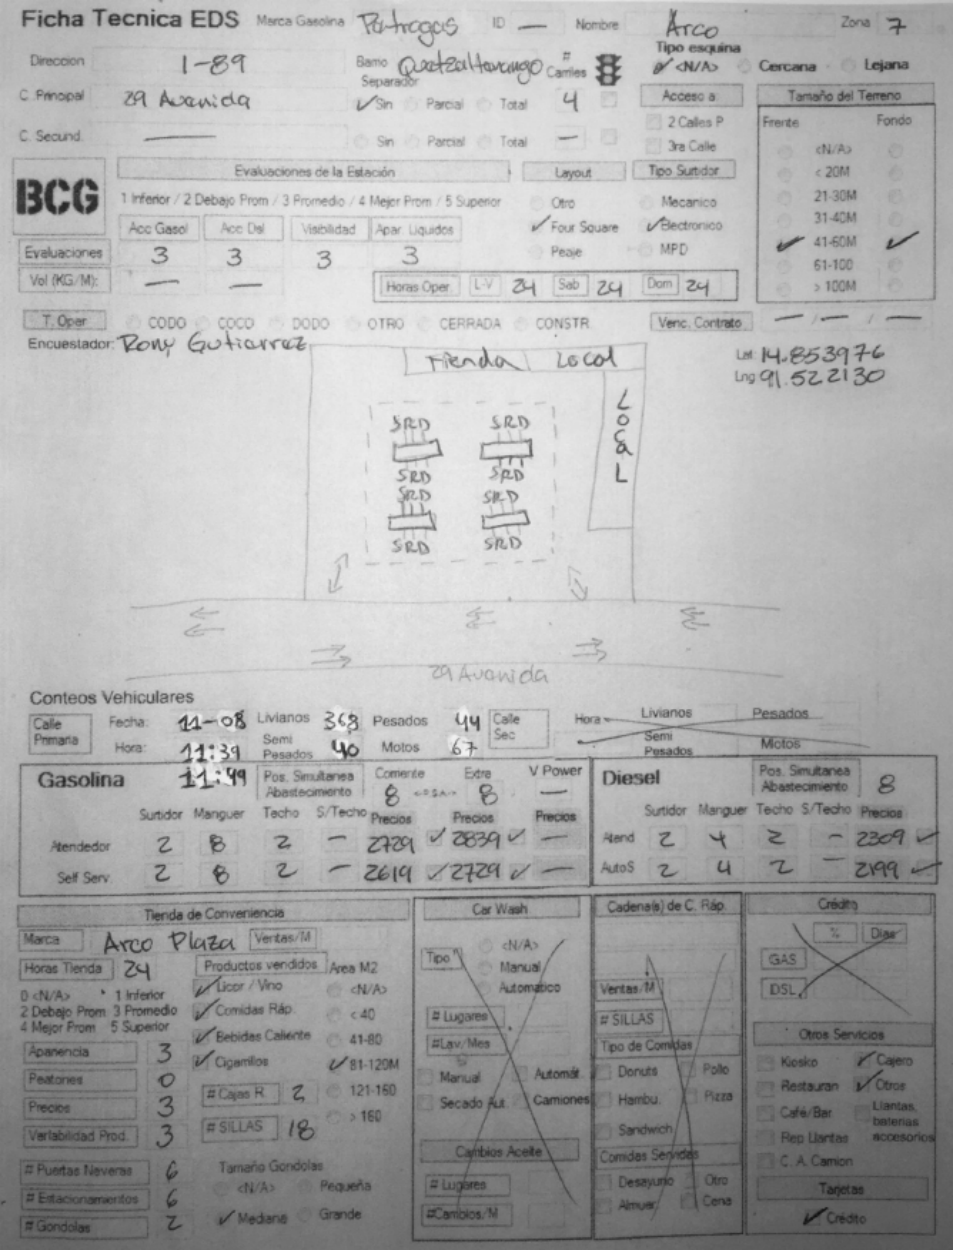 Ficha Tecnica EDS Marca Gasolina Petrogas ID — Nombre Arco Zona 7
Direccion 1-89 Barrio Quetzaltenango # Carriles Tipo esquina <N/A> Cercana Lejana
C. Principal 29 Avenida Separador Sin Parcial Total 4 Acceso a Tamaño del Terreno
2 Calles P Frente Fondo
C. Secund. — Sin Parcial Total — 3ra Calle <N/A>
BCG Evaluaciones de la Estación Layout Tipo Surtidor < 20M
1 Inferior / 2 Debajo Prom / 3 Promedio / 4 Mejor Prom / 5 Superior Otro Mecanico 21-30M
Acc Gasol Acc Dsl Visibilidad Apar. Liquidos Four Square Electronico 31-40M
Evaluaciones 3 3 3 3 Peaje MPD 41-60M
61-100
Vol (KG/M): — — Horas Oper. L-V 24 Sab 24 Dom 24 > 100M
T. Oper CODO COCO DODO OTRO CERRADA CONSTR Venc. Contrato — / — / —
Encuestador: Rony Gutierrez
Lat 14.853976
Lng 91.522130
Tienda Local
Local
SRD SRD
SRD SRD
SRD SRD
SRD SRD
29 Avenida
Conteos Vehiculares
Calle Primaria Fecha: 11-08 Livianos 368 Pesados 44 Calle Sec Hora Livianos Pesados
Hora: 11:39 Semi Pesados 40 Motos 67 Semi Pesados Motos
11:49
Gasolina Pos. Simultanea Abastecimiento Corriente 8 Extra 8 V Power — Diesel Pos. Simultanea Abastecimiento 8
Surtidor Manguer Techo S/Techo Precios Precios Precios Surtidor Manguer Techo S/Techo Precios
Atendedor 2 8 2 – 2729 2839 — Atend 2 4 2 – 2309
Self Serv. 2 8 2 – 2619 2729 — AutoS 2 4 2 – 2199
Tienda de Conveniencia Car Wash Cadena(s) de C. Ráp. Crédito
Marca Arco Plaza Ventas/M
Horas Tienda 24 Productos vendidos Area M2
0 <N/A> 1 Inferior
2 Debajo Prom 3 Promedio
4 Mejor Prom 5 Superior
Licor / Vino <N/A>
Comidas Ráp. < 40
Bebidas Caliente 41-80
Cigarrilos 81-120M
Apariencia 3
Peatones 0 # Cajas R. 2 121-160
Precios 3 # SILLAS 18 > 160
Variabilidad Prod. 3
# Puertas Neveras 6 Tamaño Gondolas
# Estacionamientos 6 <N/A> Pequeña
# Gondolas 2 Mediana Grande
Tipo <N/A>
Manual
Automático
# Lugares
#Lav/Mes
Manual Automát.
Secado Aut. Camiones
Cambios Aceite
# Lugares
#Cambios/M
Ventas/M
# SILLAS
Tipo de Comidas
Donuts Pollo
Hambu. Pizza
Sandwich
Comidas Servidas
Desayuno Otro
Almuer. Cena
% Dias
GAS
DSL
Otros Servicios
Kiosko Cajero
Restauran Otros
Café/Bar Llantas, baterias accesorios
Rep Llantas
C. A. Camion
Tarjetas
Crédito